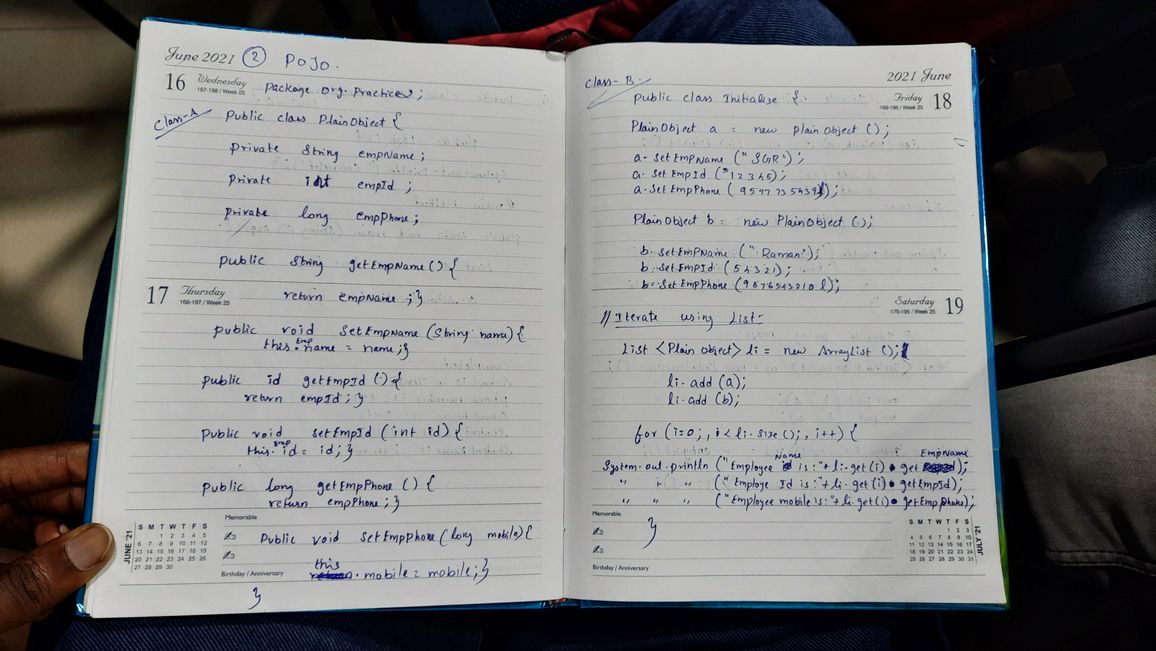 June 2021 ② POJO.
16 Wednesday
167-198 / Week 25
Package org.Practice2;
Class-A
Public class PlainObject {
Private String empName;
Private int empId ;
Private long empPhone;
public String getEmpName() {
17 Thursday
168-197 / Week 25
return empName ;}
public void SetEmpName (String name) {
this.Empname = name;}
public id getEmpId () {
return empId ; }
Public void setEmpId (int id) {
this.Empid = id; }
Public long getEmpPhone () {
return empPhone ; }
Memorable
Public void SetEmpPhone (long mobile) {
Birthday / Anniversary
this.mobile = mobile;}
}
JUNE '21
S M T W T F S
1 2 3 4 5
6 7 8 9 10 11 12
13 14 15 16 17 18 19
20 21 22 23 24 25 26
27 28 29 30
2021 June
Class-B.
Friday 18
169-196 / Week 25
Public class Initialise {
PlainObject a = new PlainObject ();
a. SetEmpName ("SGR");
a. SetEmpId (12345);
a. SetEmpPhone (9597735439l);
PlainObject b = new PlainObject ();
b. SetEmpName ("Raman");
b. SetEmpId (54321);
b. SetEmpPhone (9876543210l);
Saturday 19
170-195 / Week 25
// Iterate using List-
List <Plain Object> li = new ArrayList ();
li.add (a);
li.add (b);
for (i=0; , i < li.size (); , i++) {
System.out.println ("Employee Name is:"+ li.get(i) . get EmpName);
" " " ("Employe Id is:"+li.get(i) . getEmpId);
" " " ("Employee mobile is:"+li.get(i) . getEmpPhone);
}
Memorable
Birthday / Anniversary
JULY '21
S M T W T F S
1 2 3
4 5 6 7 8 9 10
11 12 13 14 15 16 17
18 19 20 21 22 23 24
25 26 27 28 29 30 31